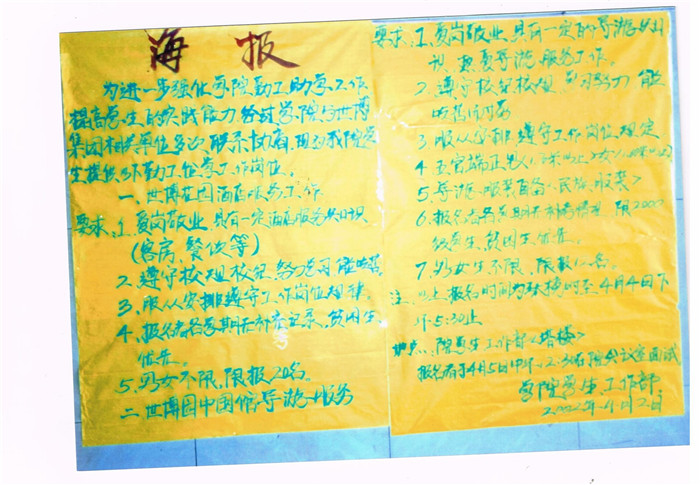 海报
为进一步强化学院勤工助学工作
提高学生的实践能力经过学院与世博
集团相关单位多次联系协商,现为我院学
生提供以下勤工俭学工作岗位。
一、世博花园酒店服务工作
要求:1.爱岗敬业,具有一定酒店服务知识
(客房、餐饮等)
2.遵守校规校纪,努力学习
3.服从安排遵守工作岗位规律。
4.报名者各学期无补考记录,贫困生
优先。
5.男女不限,限报20名。
二、世博园中国馆导游服务
要求:1.爱岗敬业,具有一定的导游知
识,热爱导游服务工作。
2.遵守校纪校规,学习努力,能
3.服从安排,遵守工作岗位规定
4.五官端正
5.导游服装自备<民族服装>
6.报名者各学期无补考情况,限2000
级学生,贫困生优先。
7.男女生不限,限报
注:以上报名时间为 至4月4日下
午5:30止
地点:院学生工作部<塔楼>
报名者于4月5日中午12:30在院会议室面试
学院学生工作部
2002年4月2日